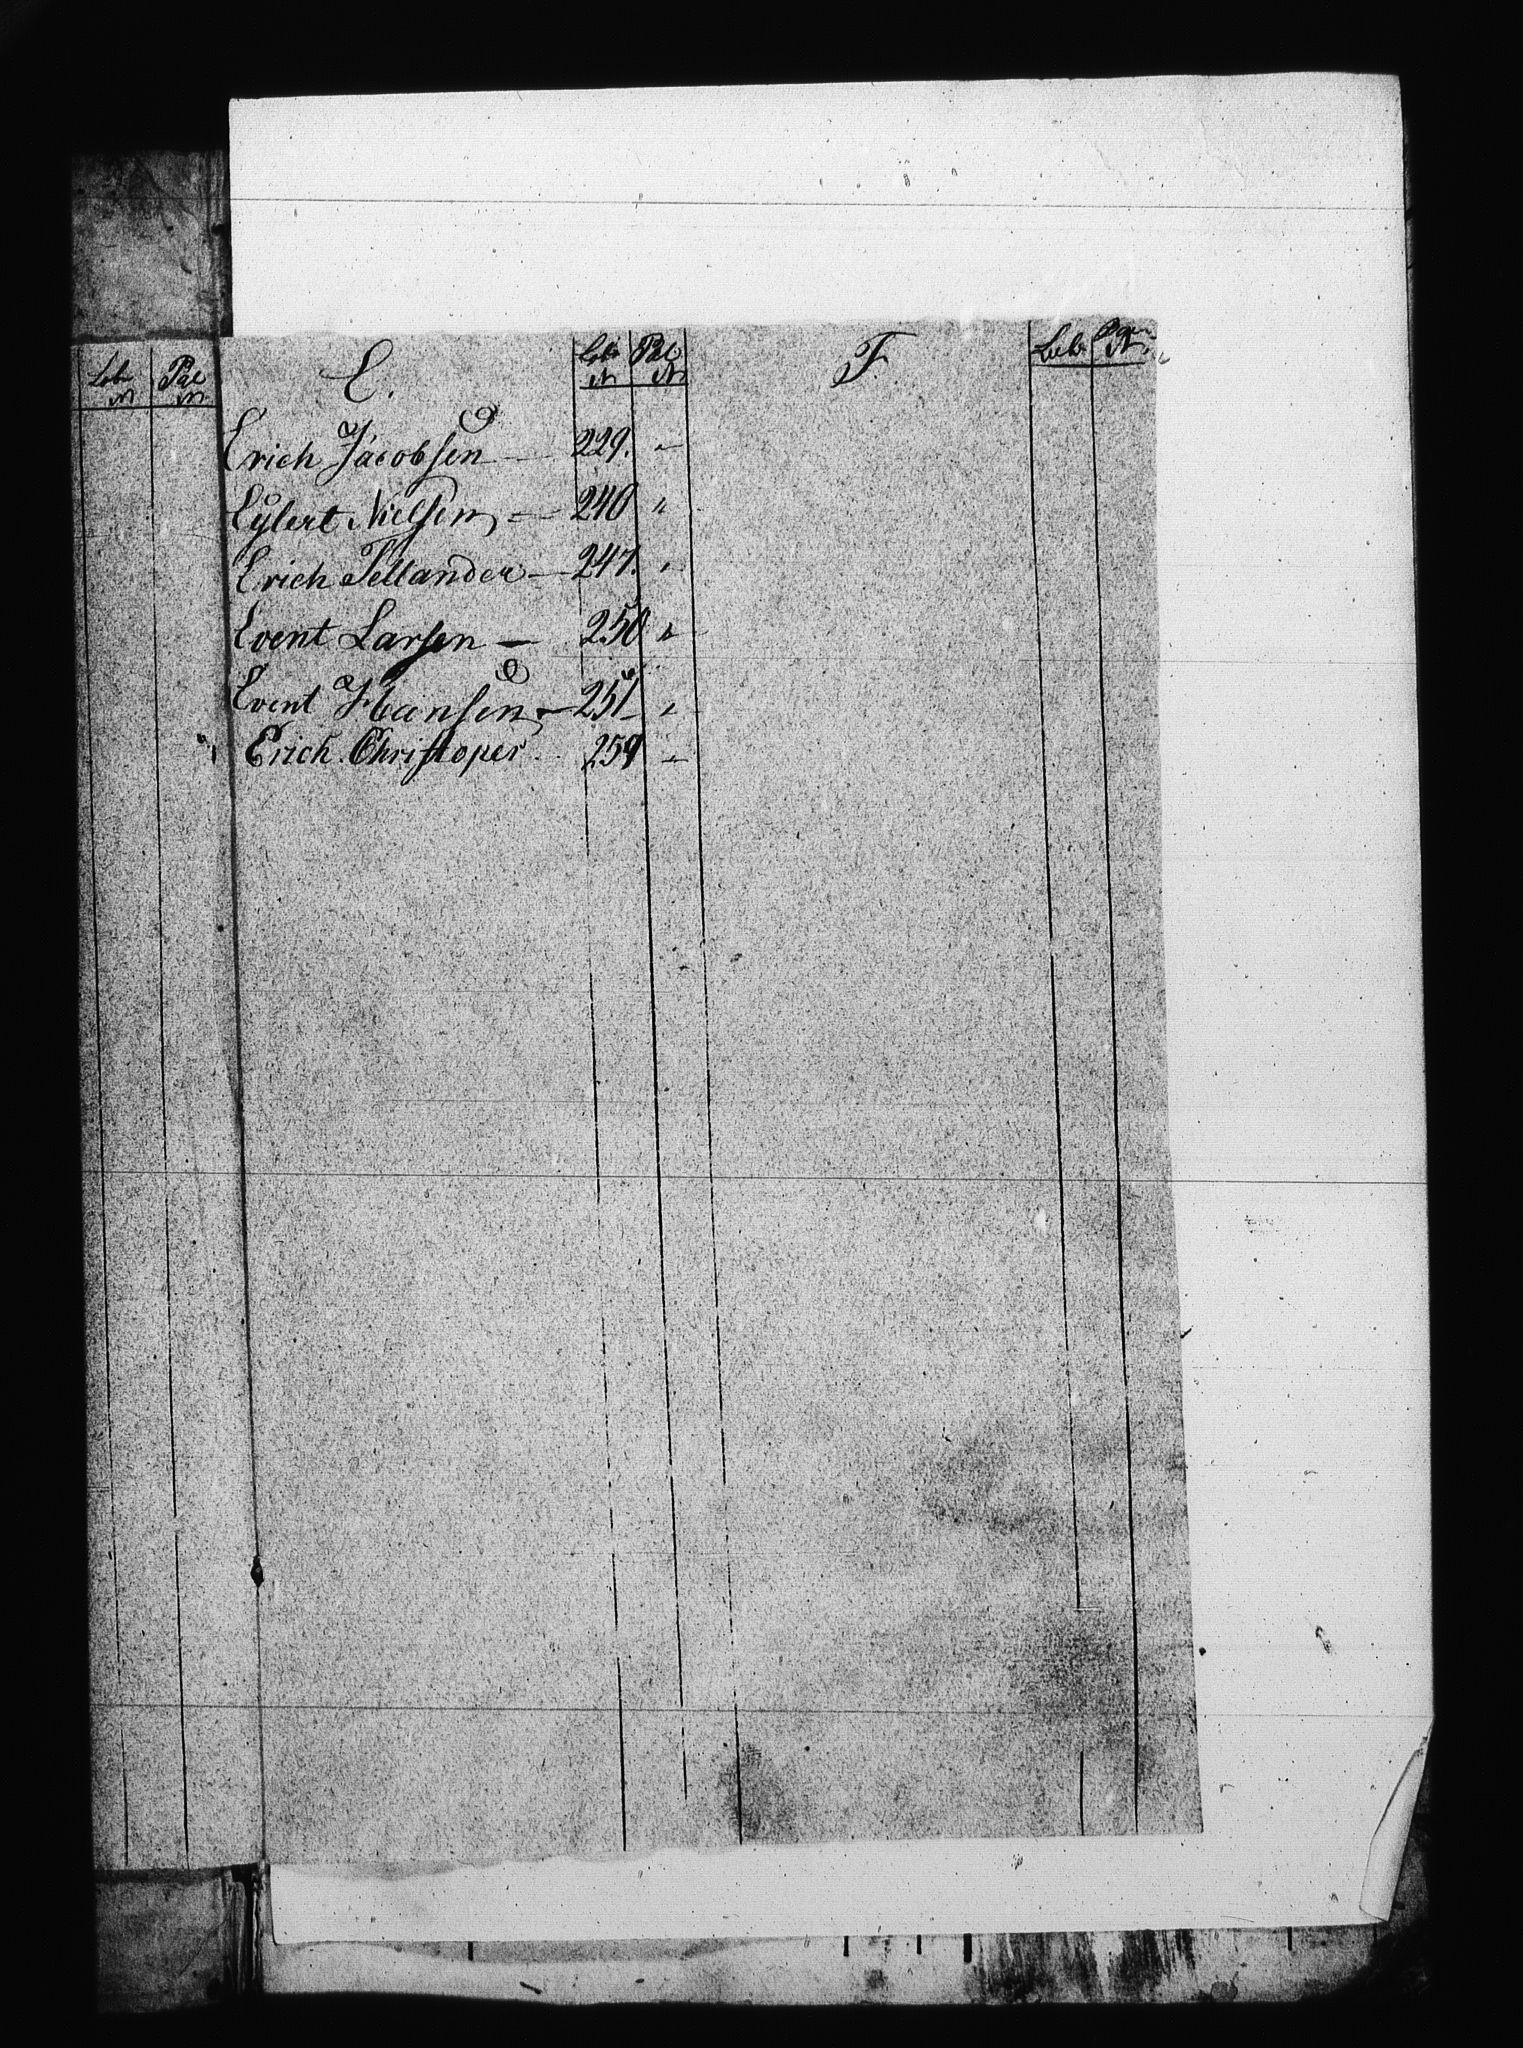 Lob Pag
N N
E. Lob Pag
N N
F Lob Pag
N
Erich Jacobsen 229. "
Eylert Nielsen 240 "
Erich Tellander 247. "
Event Larsen 250 "
Event Hansen 251 "
Erich Christoper 259 "